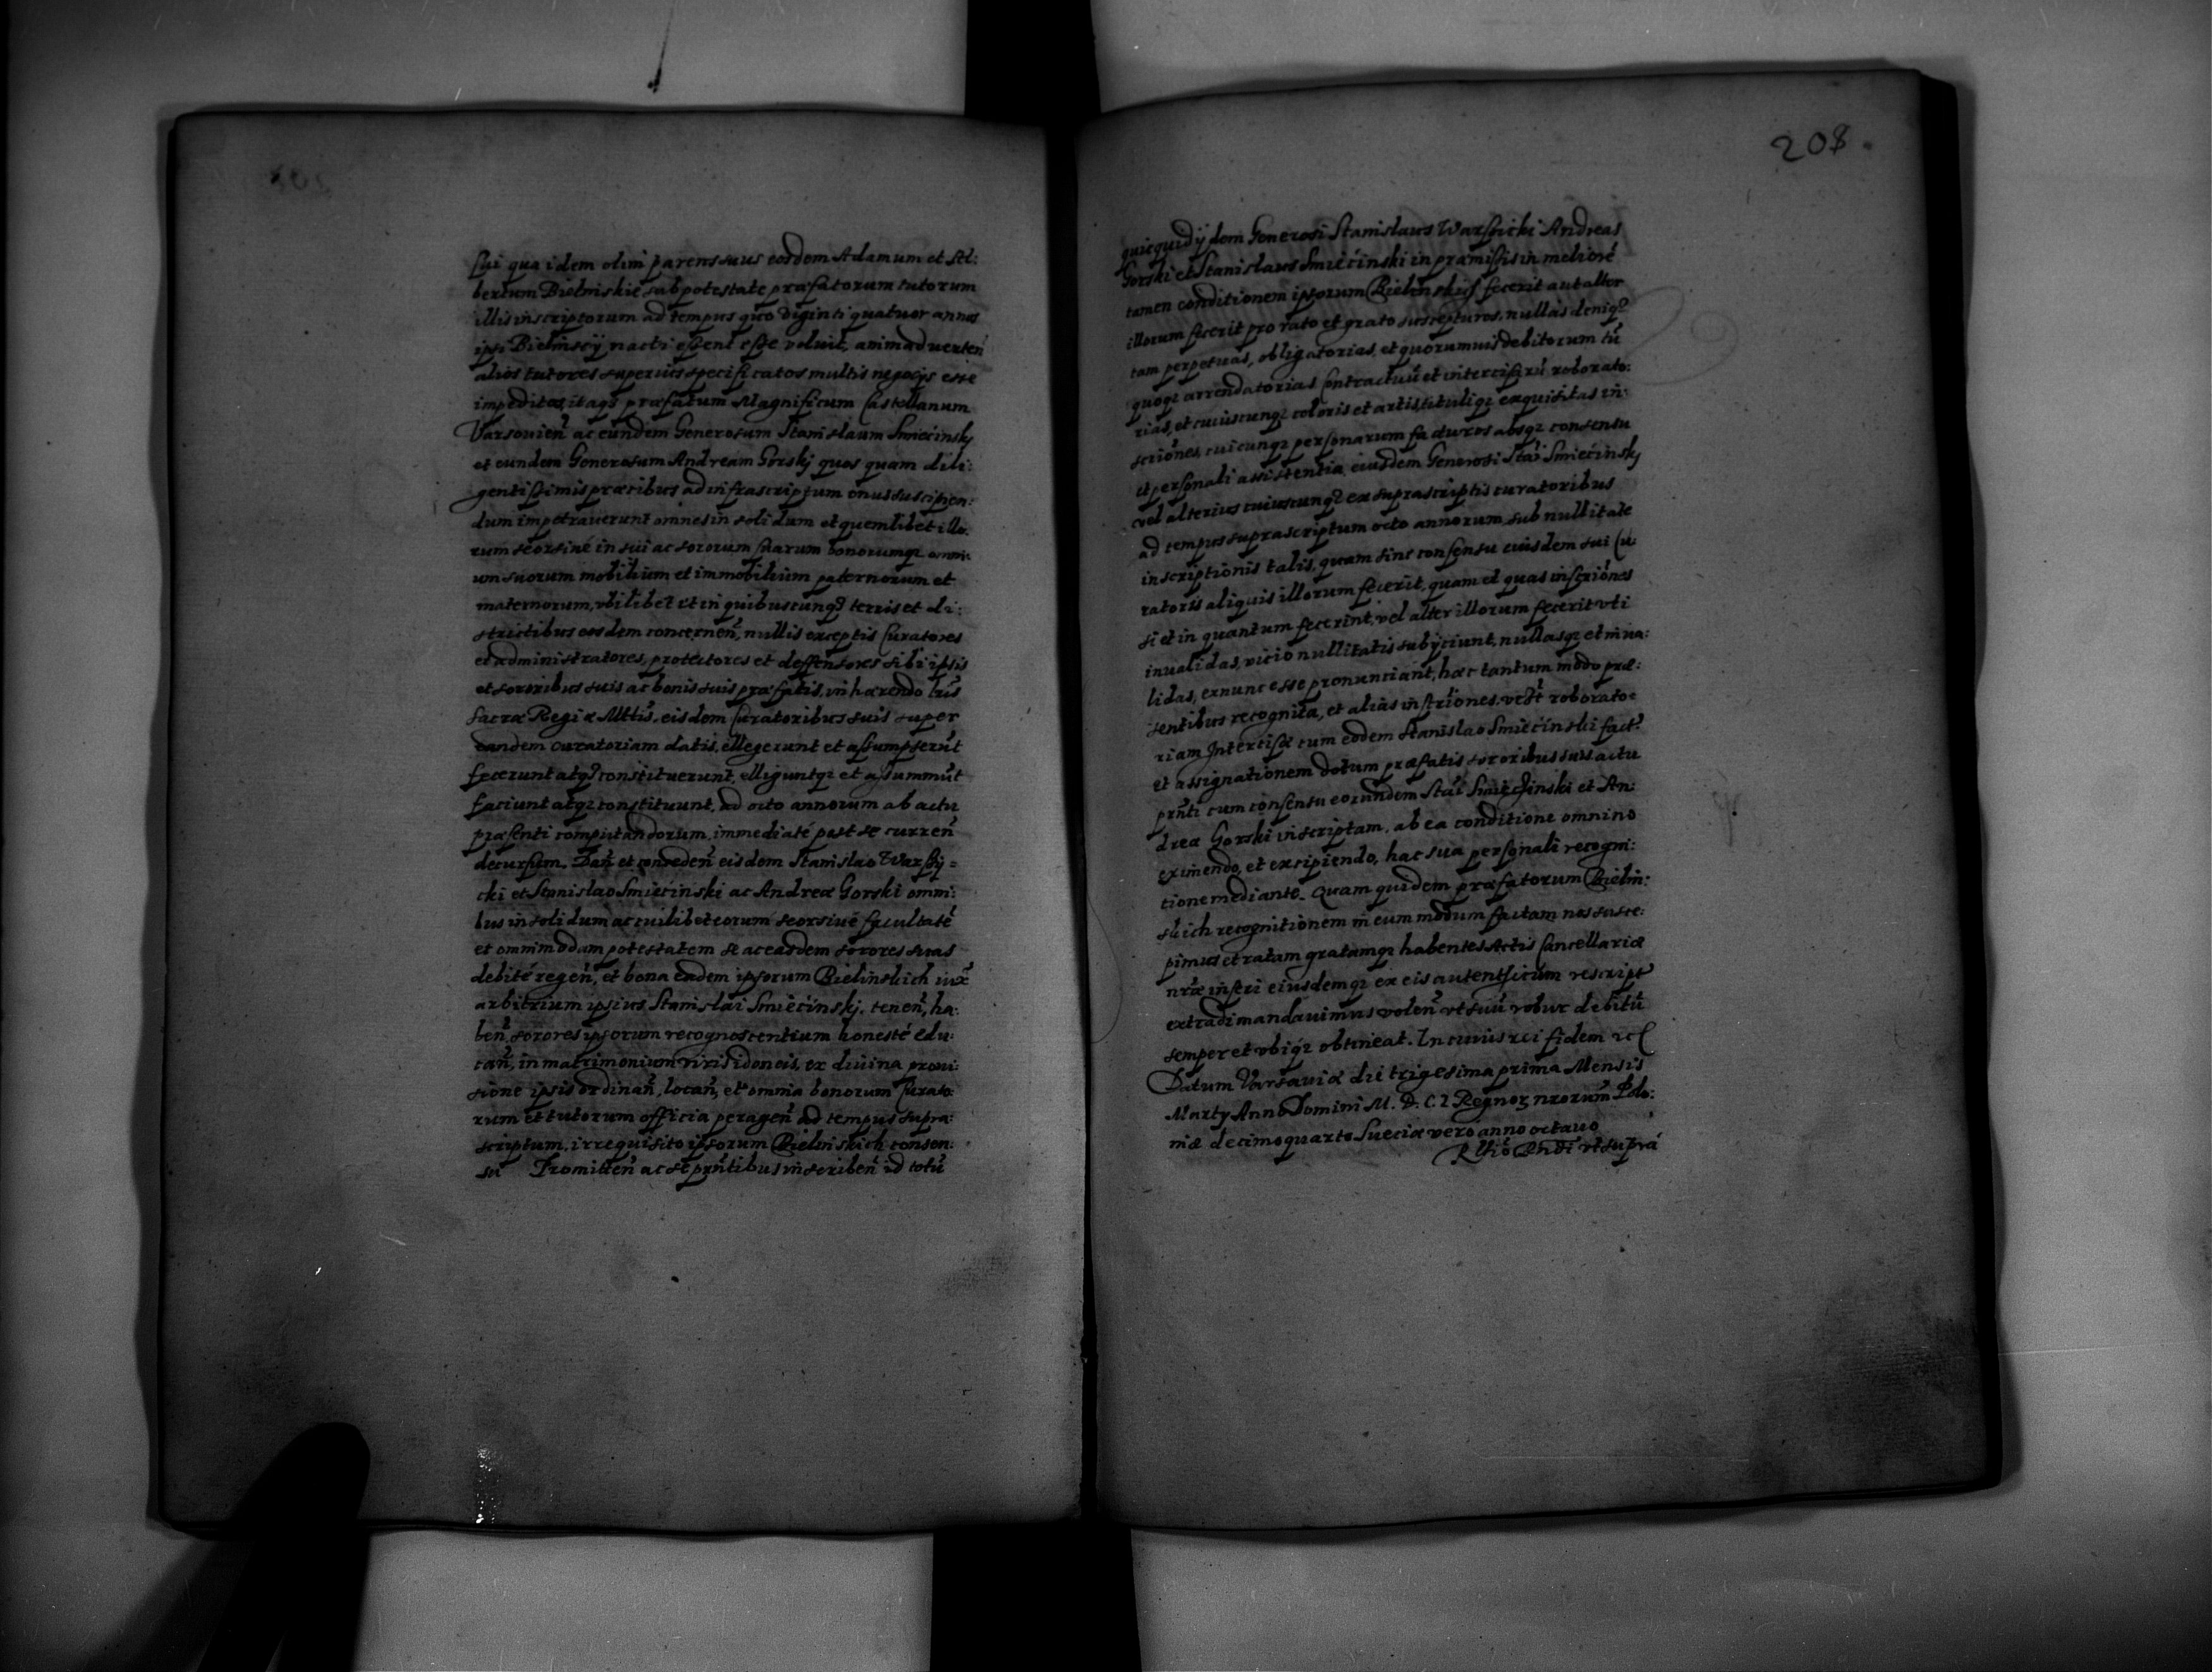 sui qua idem olim parens suus eosdem Adamum et Al:
bertum Bielinskie sub potestate præfatorum tutorum
illis inscriptorum ad tempus quo viginti quatuor annos
ipsi Bielinscÿ nacti essent esse voluit, animaduerteñ
alios tutores superius specificatos multis negocÿs esse
impeditos, itaqȝ præfatum Magnificum Castellanum
Varsovieñ ac eundem Generosum Stanislaum Smiecinskj
et eundem Generosum Andream Gorskj quos quam dili:
gentissimis præcibus ad infrascriptum onus suscipien:
dum impetrauerunt omnes in solidum et quemlibet illo:
rum seorsiué in sui ac sororum suarum bonorumqȝ omni:
um suorum mobilium et immobilium paternorum et
maternorum, vbilibet et in quibuscunqȝ terris et di:
strictibus eosdem concerneñ, nullis exceptis Curatores
et administratores, protectores et deffensores sibi ipsis
et sororibus suis ac bonis suis præfatis, inhærendo lrĩs
Sacræ Regiæ Mttis. eisdem Curatoribus suis super
eandem curatoriam datis, ellegerunt et assumpserũt
fecerunt atqȝ constituerunt, elliguntqȝ et assummũt
faciunt atqȝ constituunt, ad octo annorum ab actu
præsenti computandorum, immediaté post se curreñ
decursum. Dañ et concedeñ eisdem Stanislao Warsÿ=
cki et Stanislao Smiecinski ac Andreæ Gorski omni:
bus in solidum ac cuilibet eorum seorsiué facultatẽ
et omnimodam potestatem se ac easdem sorores suas
debité regeñ, et bona eadem ipsorum Bielinskich iux̃
arbitrium ipsius Stanislai Smiecinskj. teneñ, ha:
beñ, sorores ipsorum recognoscentium honesté edu:
cañ, in matrimonium viris idoneis, ex diuina proui:
sione ipsis ordinañ, locañ, et omnia bonorum Curato:
rum et tutorum officia perageñ ad tempus supra:
scriptum, irrequisito ipsorum Bielinskich consen:
su Promitteñ ac se prñtibus inscribeñ id totũ
208.
quicquid ÿdem Generosi Stanislaus Warsicki Andreas
Gorski et Stanislaus Smiecinski in præmissis in meliorẽ
tamen conditionem ipsorum Bielinskich fecerit aut alter
illorum fecerit pro rato et grato suscepturos, nullas deniqȝ
tam perpetuas, obligatorias, et quorumuis debitorum tũ
quoqȝ arrendatorias Contractuũ et intercisarũ roborato:
rias, et cuiuscunqȝ coloris et artis, tituliqȝ exquisitas in:
scriones, cuicunqȝ personarum facturos absqȝ consensu
et personali assistentia eiusdem Generosi Stai Smiecinskj
vel alterius cuiuscunqȝ ex suprascriptis curatoribus
ad tempus suprascriptum octo annorum, sub nullitate
inscriptionis talis, quam sine consensu eiusdem sui Cu:
ratoris aliquis illorum fecerit, quam et quas inscriones
si et in quantum fecerint, vel alter illorum fecerit vti
inualidas, vicio nullitatis subÿciunt, nullasqȝ et inua:
lidas, exnunc esse pronunciant, hac tantum modo præ:
sentibus recognita, et alias inscriones roborato=
riam Intercisæ cum eodem Stanislao Smiecinski fact?
et assignationem dotum præfatis sororibus suis actu
prñti cum consensu eorundem Stai Smiecinski et An:
dreæ Gorski inscriptam, ab ea conditione omnino
eximendo, et excipiendo, hac sua personali recogni:
tione mediante. Quam quidem præfatorum Bielin:
skich recognitionem in eum modum factam nos susce:
pimus et ratam gratamqȝ habentes Actis Cancellariæ
nr̃æ inseri eiusdemqȝ ex eis autenthicum rescript
extradi mandauimus voleñ vt suũ robur debitũ
semper et vbiqȝ obtineat. In cuius rei fidem etc
Datum Varsauiæ die trigesima prima Mensis
Martÿ Anno Domini M. D. C. I Regnorȝ nrorum Polo:
niæ decimoquarto Sueciæ vero anno octauo
Rltio vt supra